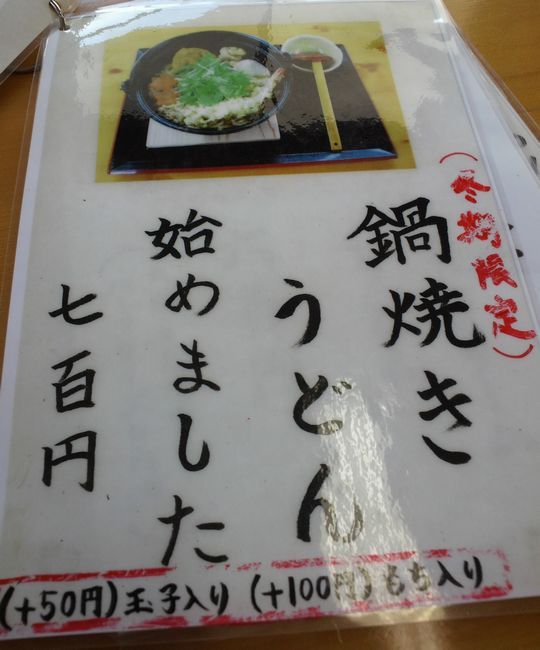 (冬期限定)
鍋焼き
うどん
始めました
七百円
(+50円)玉子入り (+100円)もち入り